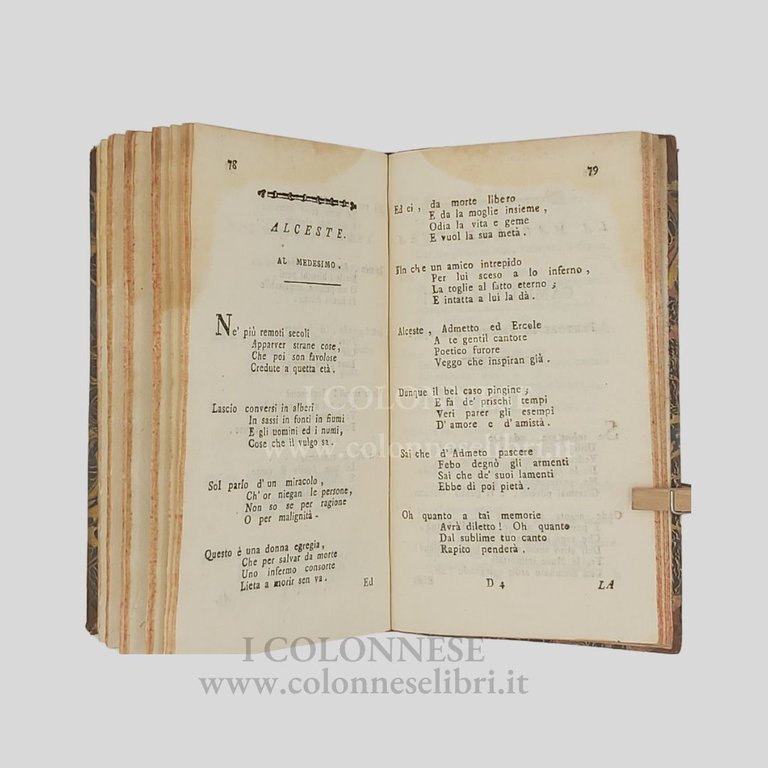 78
ALCESTE.
AL MEDESIMO.
Ne' più remoti secoli
Apparver strane cose,
Che poi son favolose
Credute a questa età.
Lascio conversi in alberi
In sassi in fonti in fiumi
E gli uomini ed i numi,
Cose che il vulgo sa.
Sol parlo d' un miracolo,
Ch' or niegan le persone,
Non so se per ragione
O per malignità.
Questo è una donna egregia,
Che per salvar da morte
Uno infermo consorte
Lieta a morir sen va.
Ed
79
Ed ei, da morte libero
E da la moglie insieme,
Odia la vita e geme
E vuol la sua metà.
Fin che un amico intrepido
Per lui sceso a lo inferno,
La toglie al fatto eterno;
E intatta a lui la dà.
Alceste, Admetto ed Ercole
A te gentil cantore
Poetico furore
Veggo che inspiran già.
Dunque il bel caso pingine;
E fa de' prischi tempi
Veri parer gli esempi
D' amore e d' amistà.
Sai che d' Admeto pascere
Febo degnò gli armenti
Sai che de' suoi lamenti
Ebbe di poi pietà.
Oh quanto a tai memorie
Avrà diletto! Oh quanto
Dal sublime tuo canto
Rapito penderà.
D 4 LA
I COLONNESE
www.colonneselibri.it
I COLONNESE
www.colonneselibri.it